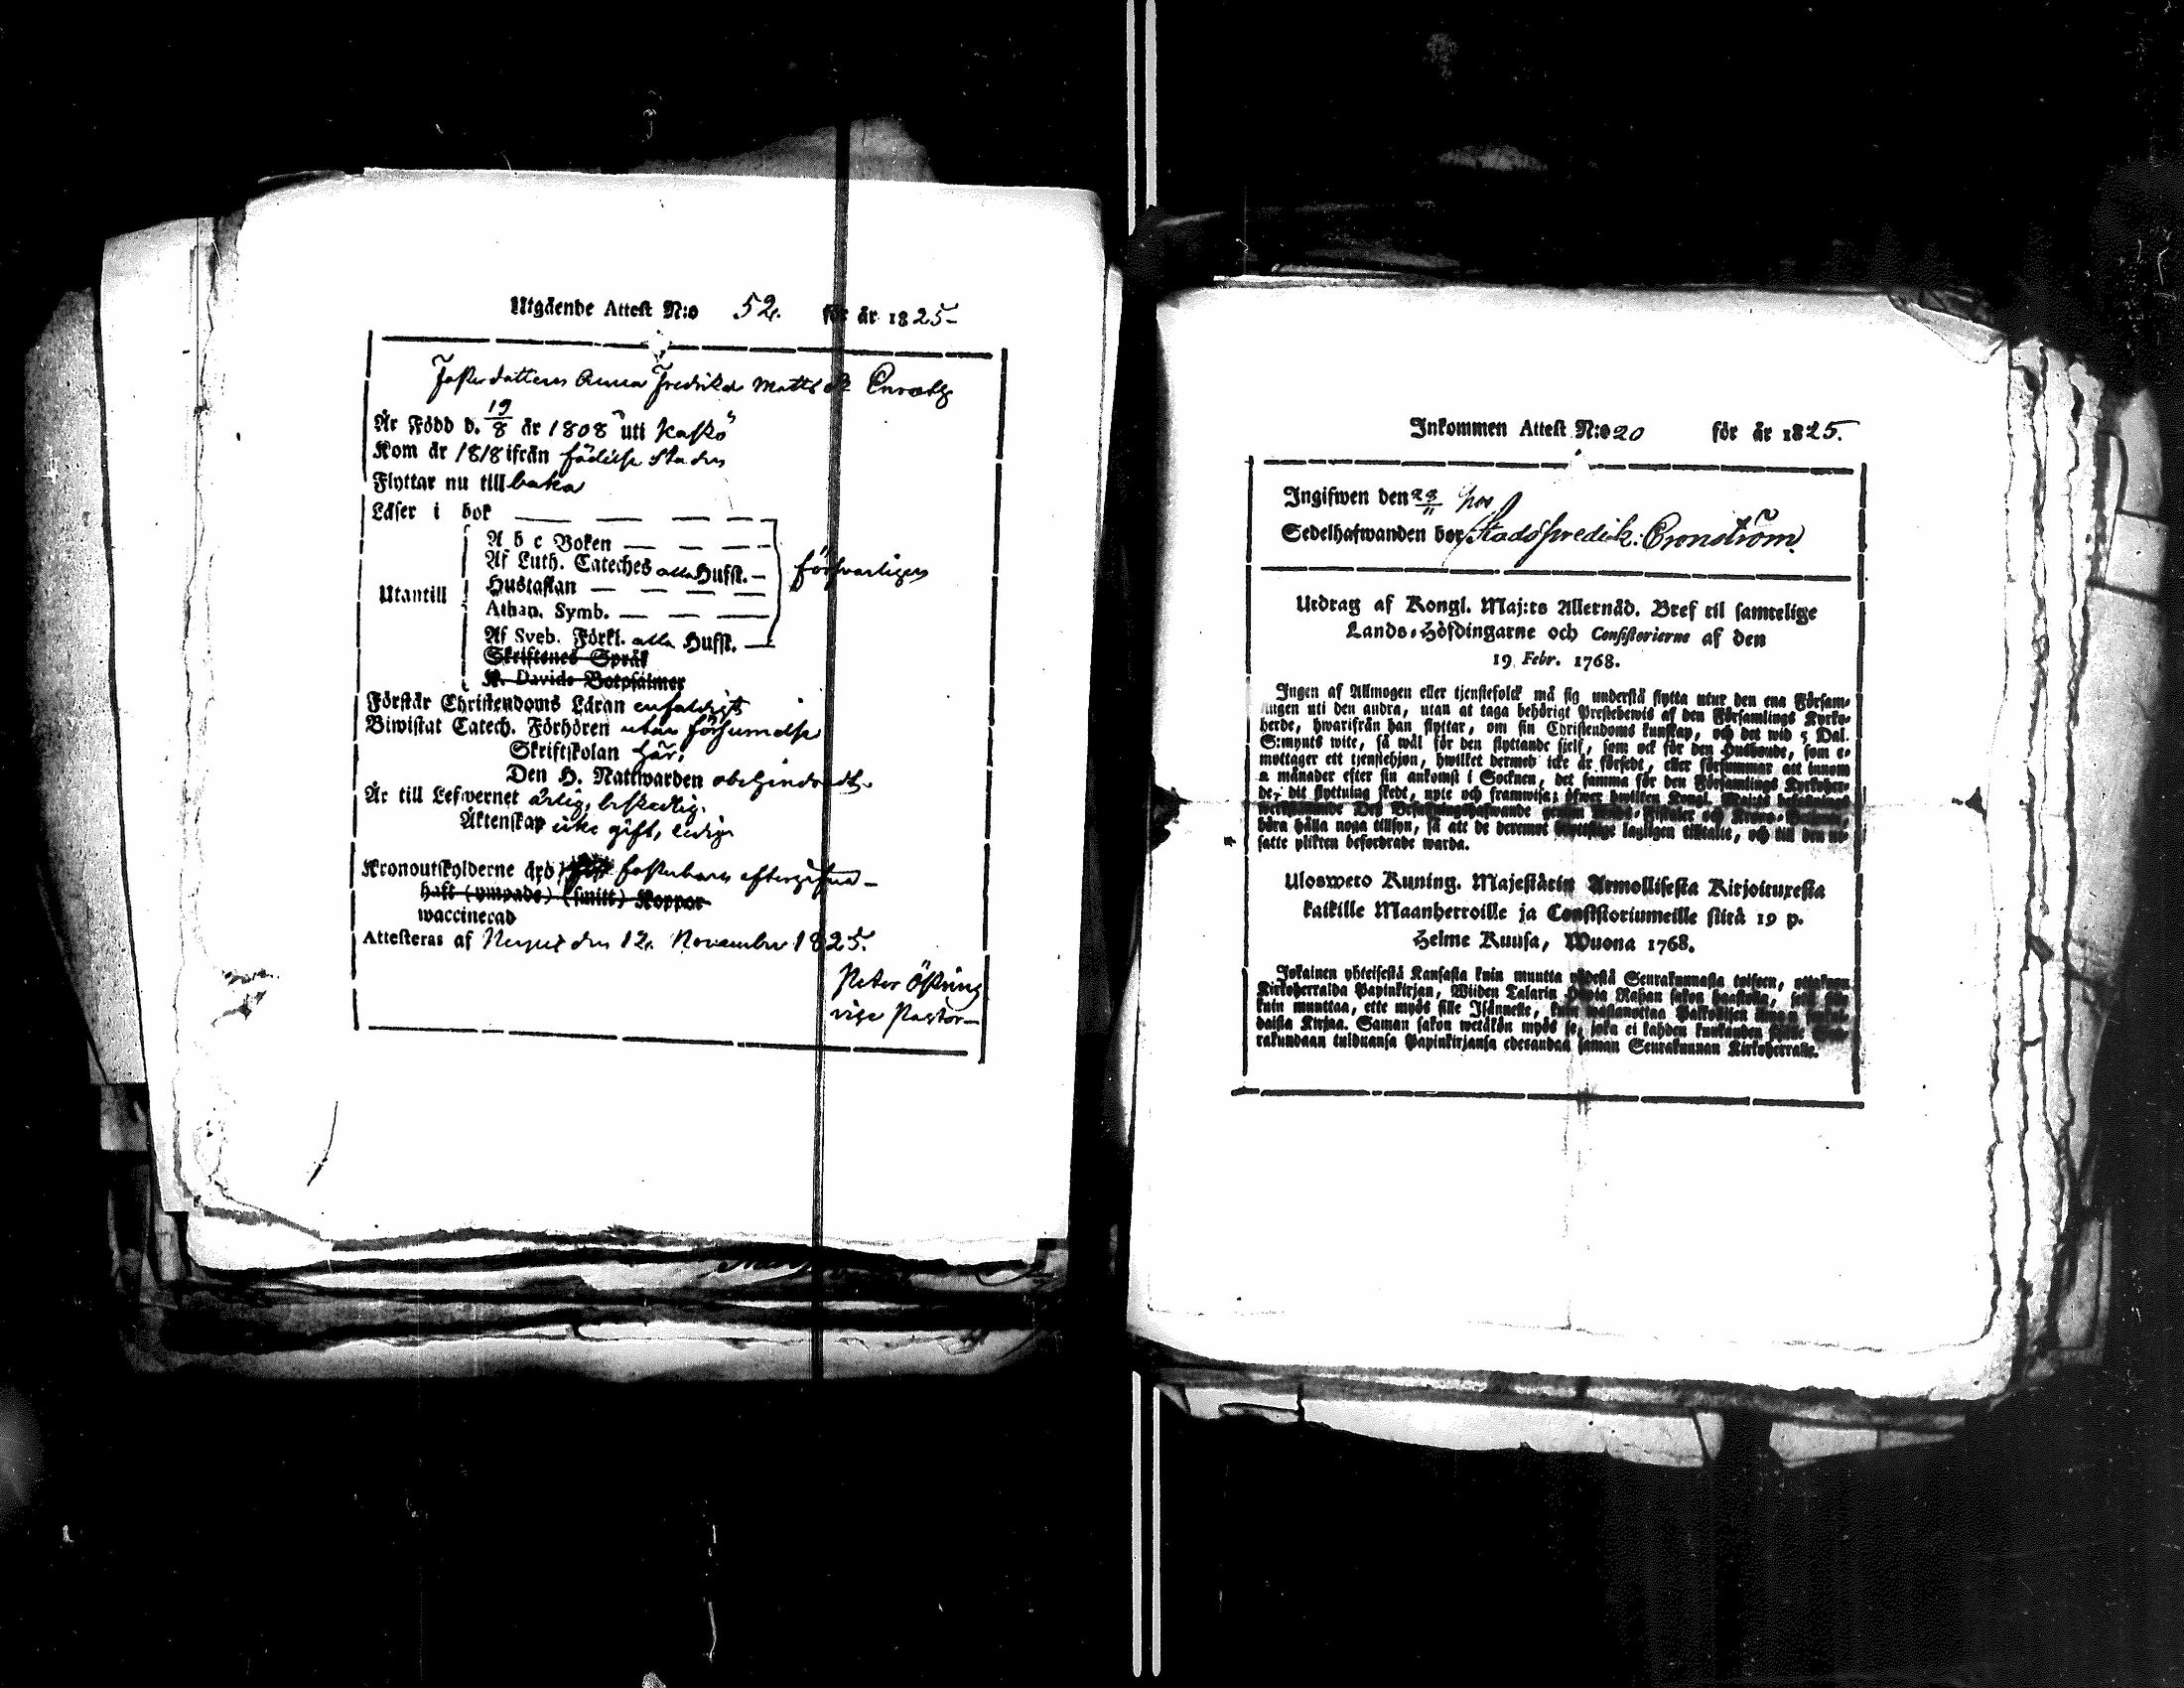 Utgående Attest N:o 52. för år 1825-
Fosterdottren Anna Fredrika Matts dr Enroth
Är Född d. 19/8 år 1808 uti Kaskö
Kom år 1818 ifrån födelse staden
Flyttar nu till baka
Läser i bok
A b c Boken
Af Luth. Cateches alla Hufst.
försvarligen
Hustaflan
Utantill
Athan. Symb.
Af Sveb. Förkl. alla Hufst.
Skriftenes Språk
K. Davids Botpsalmer
Förstår Christendoms Läran enfaldigt
Biwistat Catech. Förhören utan försumelse
Skriftskolan här,
Den H. Nattwarden obehindradt.
Är till Lefwernet ärlig, beskedlig.
Äktenskap icke gift, ledig
Kronoutskylderne äro fosterbarn eftergifna -
haft (ympade) (smitt) Koppor
waccinerad
Attesteras af den 12. November 1825.
Peter Östring
vice Pastor
Inkommen Attest N:o 20 för år 1825.
Ingifwen den 28/11 hos
Sedelhafwanden bor Stadsfredik: Cronström.
Utdrag af Kongl. Maj:ts Allernåd. Bref til samtelige
Lands-Höfdingarne och Consistorierne af den
19 Febr. 1768.
Ingen af Allmogen eller tjenstefolck må sig understå flytta utur den ena Försam-
lingen uti den andra, utan at taga behörigt Prestebewis af den Församlings Kyrko-
herde, hwarifrån han flyttar, om sin Christendoms kunskap, och det wid 5 Dal.
S:mynts wite, så wäl för den flyttande sjelf, som ock för den Husbonde, som e-
mottager ett tjenstehjon, hwilket dermed icke är försedt, eller försummar att innom
2 månader efter sin ankomst i Socknen, det samma för den Församlings Kyrkoher-
de, dit flyttning skedt, upte och framwisa; öfwer hwilken Kongl. Maj:ts befallnings
werkställande Des Befallningshafwande genom Krono-Betjente,
böra hålla noga tillsyn, så att de deremot brottslige lagligen tilltalte, och till den ut-
satte plikten befordrade warda.
Ulosweto Kuning. Majestätin Armollisesta Kirjoituxesta
kaikille Maanherroille ja Consistoriumeille siitä 19 p.
Helme Kuusa, Wuona 1768.
Jokainen yhteisestä Kansasta kuin muutta yhdestä Seurakunnasta toiseen, ottakoon
Kirkoherralda Papinkirjan, Wiiden Talarin Hopia Rahan sakon haastolla,
kuin muuttaa, ette myös sille Isännelle, kuin wastanottaa Palkollisen ilman
daista Kirjaa. Saman sakon wetäkön myös se, joka ei kahden kuukauden
rakundaan tulduansa Papinkirjansa edesandaa saman Seurakunnan Kirkoherralle.